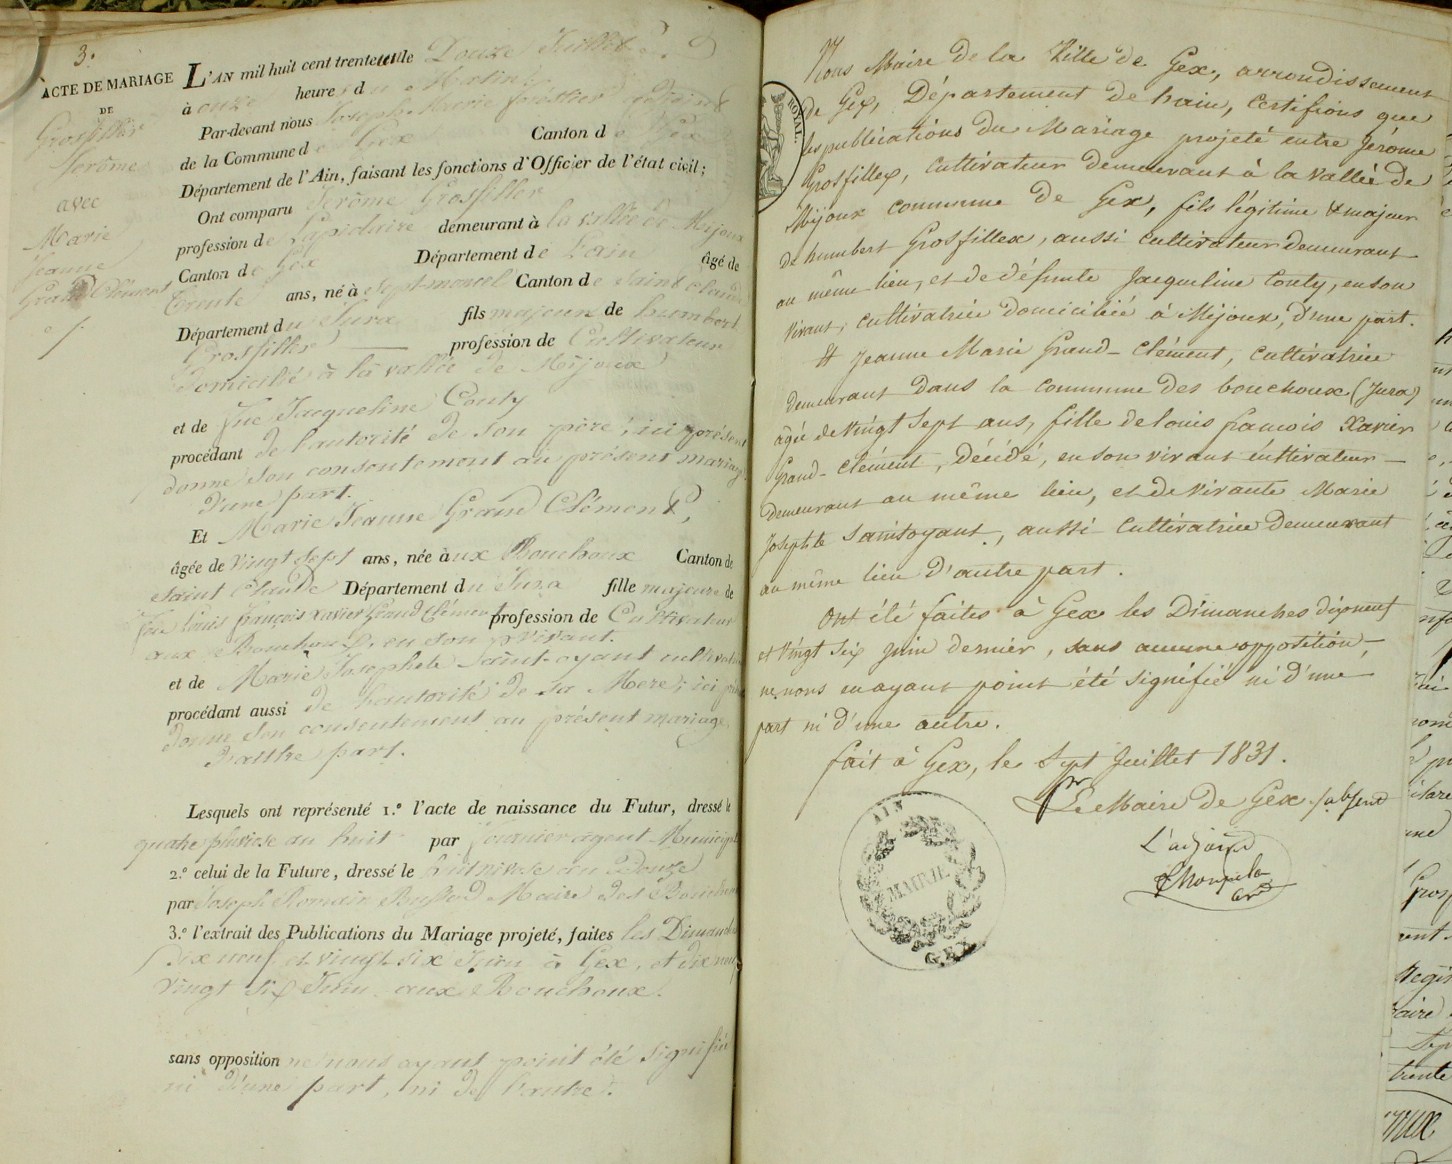 3.
ACTE DE MARIAGE
DE
Grosfiller
Jerôme
avec
Marie
Jeanne
Grand Clément
L'AN mil huit cent trente Douze Juillet
à onze heure d u Matin
Par-devant nous Joseph Marie adjoint
de la Commune d e Gex Canton d e Gex
Département de l'Ain, faisant les fonctions d'Officier de l'état civil;
Ont comparu Jerôme Grosfiller
profession de Lapidaire demeurant à la vallée de Mijoux
Canton d e Gex Département d e L'ain âgé de
Trente ans, né à Septmoncel Canton d e Saint Claude
Département d u Jura fils majeur de humbert
Grosfiller profession de Cultivateur
Domicilié à la vallée de Mijoux
et de Jacqueline Conty
procédant de l'autorité de son père, ici présent
donne son consentement au présent mariage
D'une part.
Et Marie Jeanne Grand Clément,
âgée de vingt sept ans, née à ux Bouchoux Canton de
Saint Claude Département d u Jura fille majeure de
feu Louis françois xavier Grand Clément profession de Cultivateur
aux Bouchoux, en son vivant.
et de Marie Josephte Saint-oyant cultivatrice
procédant aussi de l'autorité de sa Mere, ici
Donne son consentement au présent mariage
D'autre part.
Lesquels ont représenté 1.º l'acte de naissance du Futur, dressé le
quatre pluviose an huit par agent Municipal
2.º celui de la Future, dressé le huit nivose an Douze
par Joseph Romain Maire des Bouchoux
3.º l'extrait des Publications du Mariage projeté, faites les Dimanches
Dix neuf et vingt six Juin à Gex, et dix neuf
vingt six Juin aux Bouchoux.
sans opposition ne nous ayant point été signifié
ni d'une part, ni de l'autre.
ROYAL.
Nous Maire de la Ville de Gex, arrondissement
de Gex, Département de l'ain, Certifions que
les publications du Mariage projeté entre Jérôme
Grosfillex, cultivateur demeurant à la vallée de
Mijoux commune de Gex, fils légitime & majeur
de humbert Grosfillex, aussi cultivateur demeurant
au même lieu, et de défunte Jacqueline Conty, en son
vivant, cultivatrice domiciliée à Mijoux, d'une part.
Et Jeanne Marie Grand-Clément, cultivatrice
demeurant dans la commune des bouchoux (Jura)
âgée de vingt sept ans, fille de louis francois Xavier
Grand-Clément, décédé, en son vivant cultivateur
demeurant au même lieu, et de vivante Marie
Josephte Saintoyant, aussi Cultivatrice demeurant
au même lieu d'autre part.
Ont été faites à Gex les Dimanches dixneuf
et vingt six juin dernier, sans aucune opposition,
ne nous en ayant point été signifié ni d'une
part ni d'une autre.
fait à Gex, le Sept Juillet 1831.
Pr Le Maire de Gex absent
L'adjoint
AIN
MAIRIE
GEX